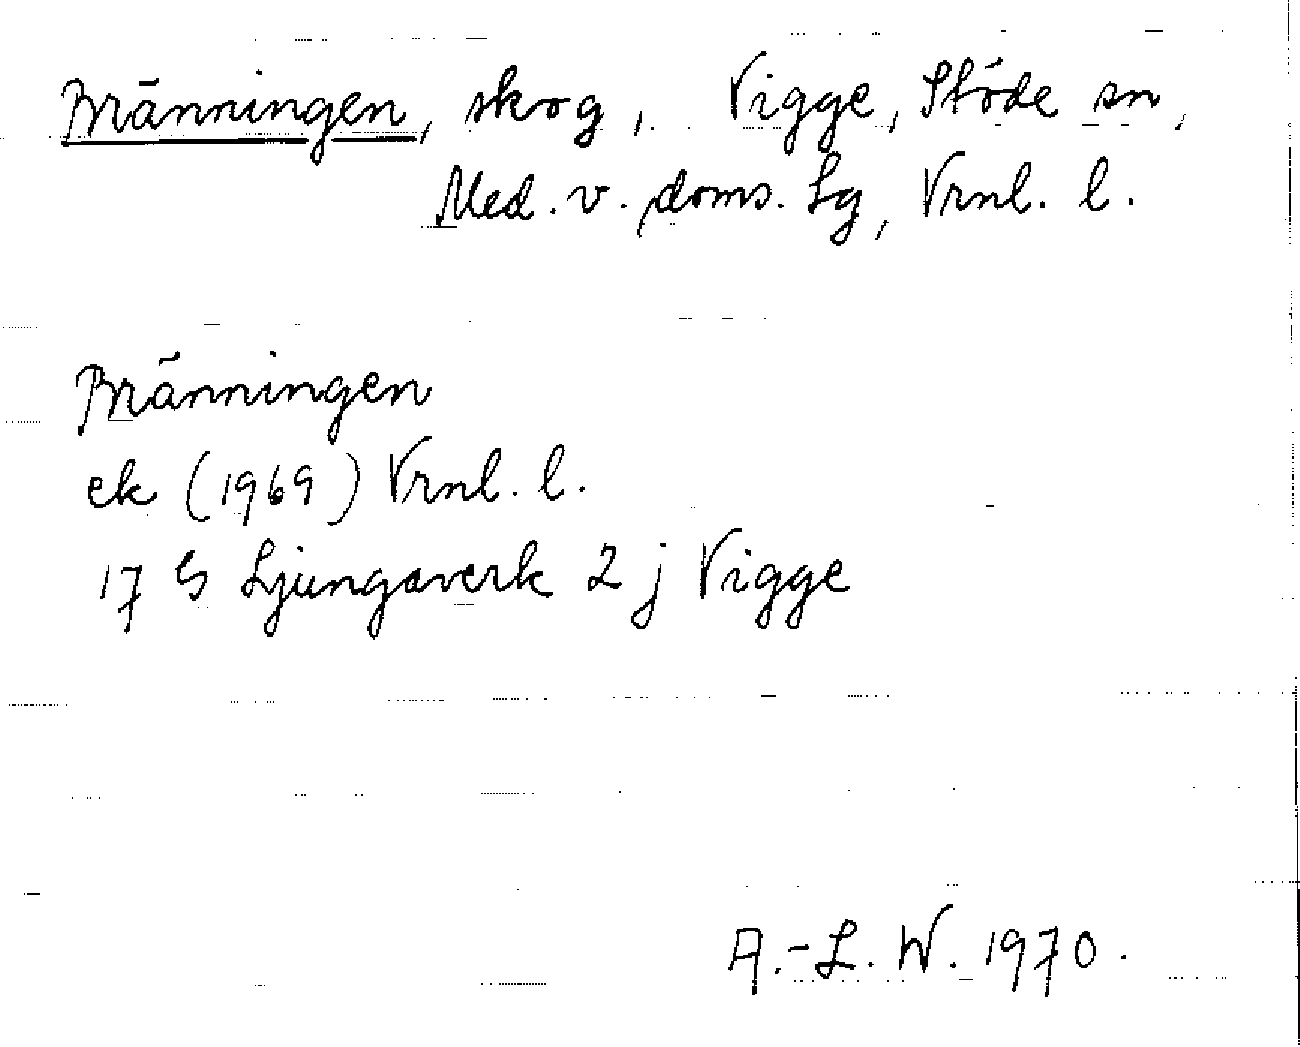 Bränningen, skog, Vigge, Stöde sn,
Med. v. doms. Lg, Vrnl. l.
Bränningen
ek (1969) Vrnl. l.
17 G Ljungaverk 2 j Vigge
A.-L. W. 1970.